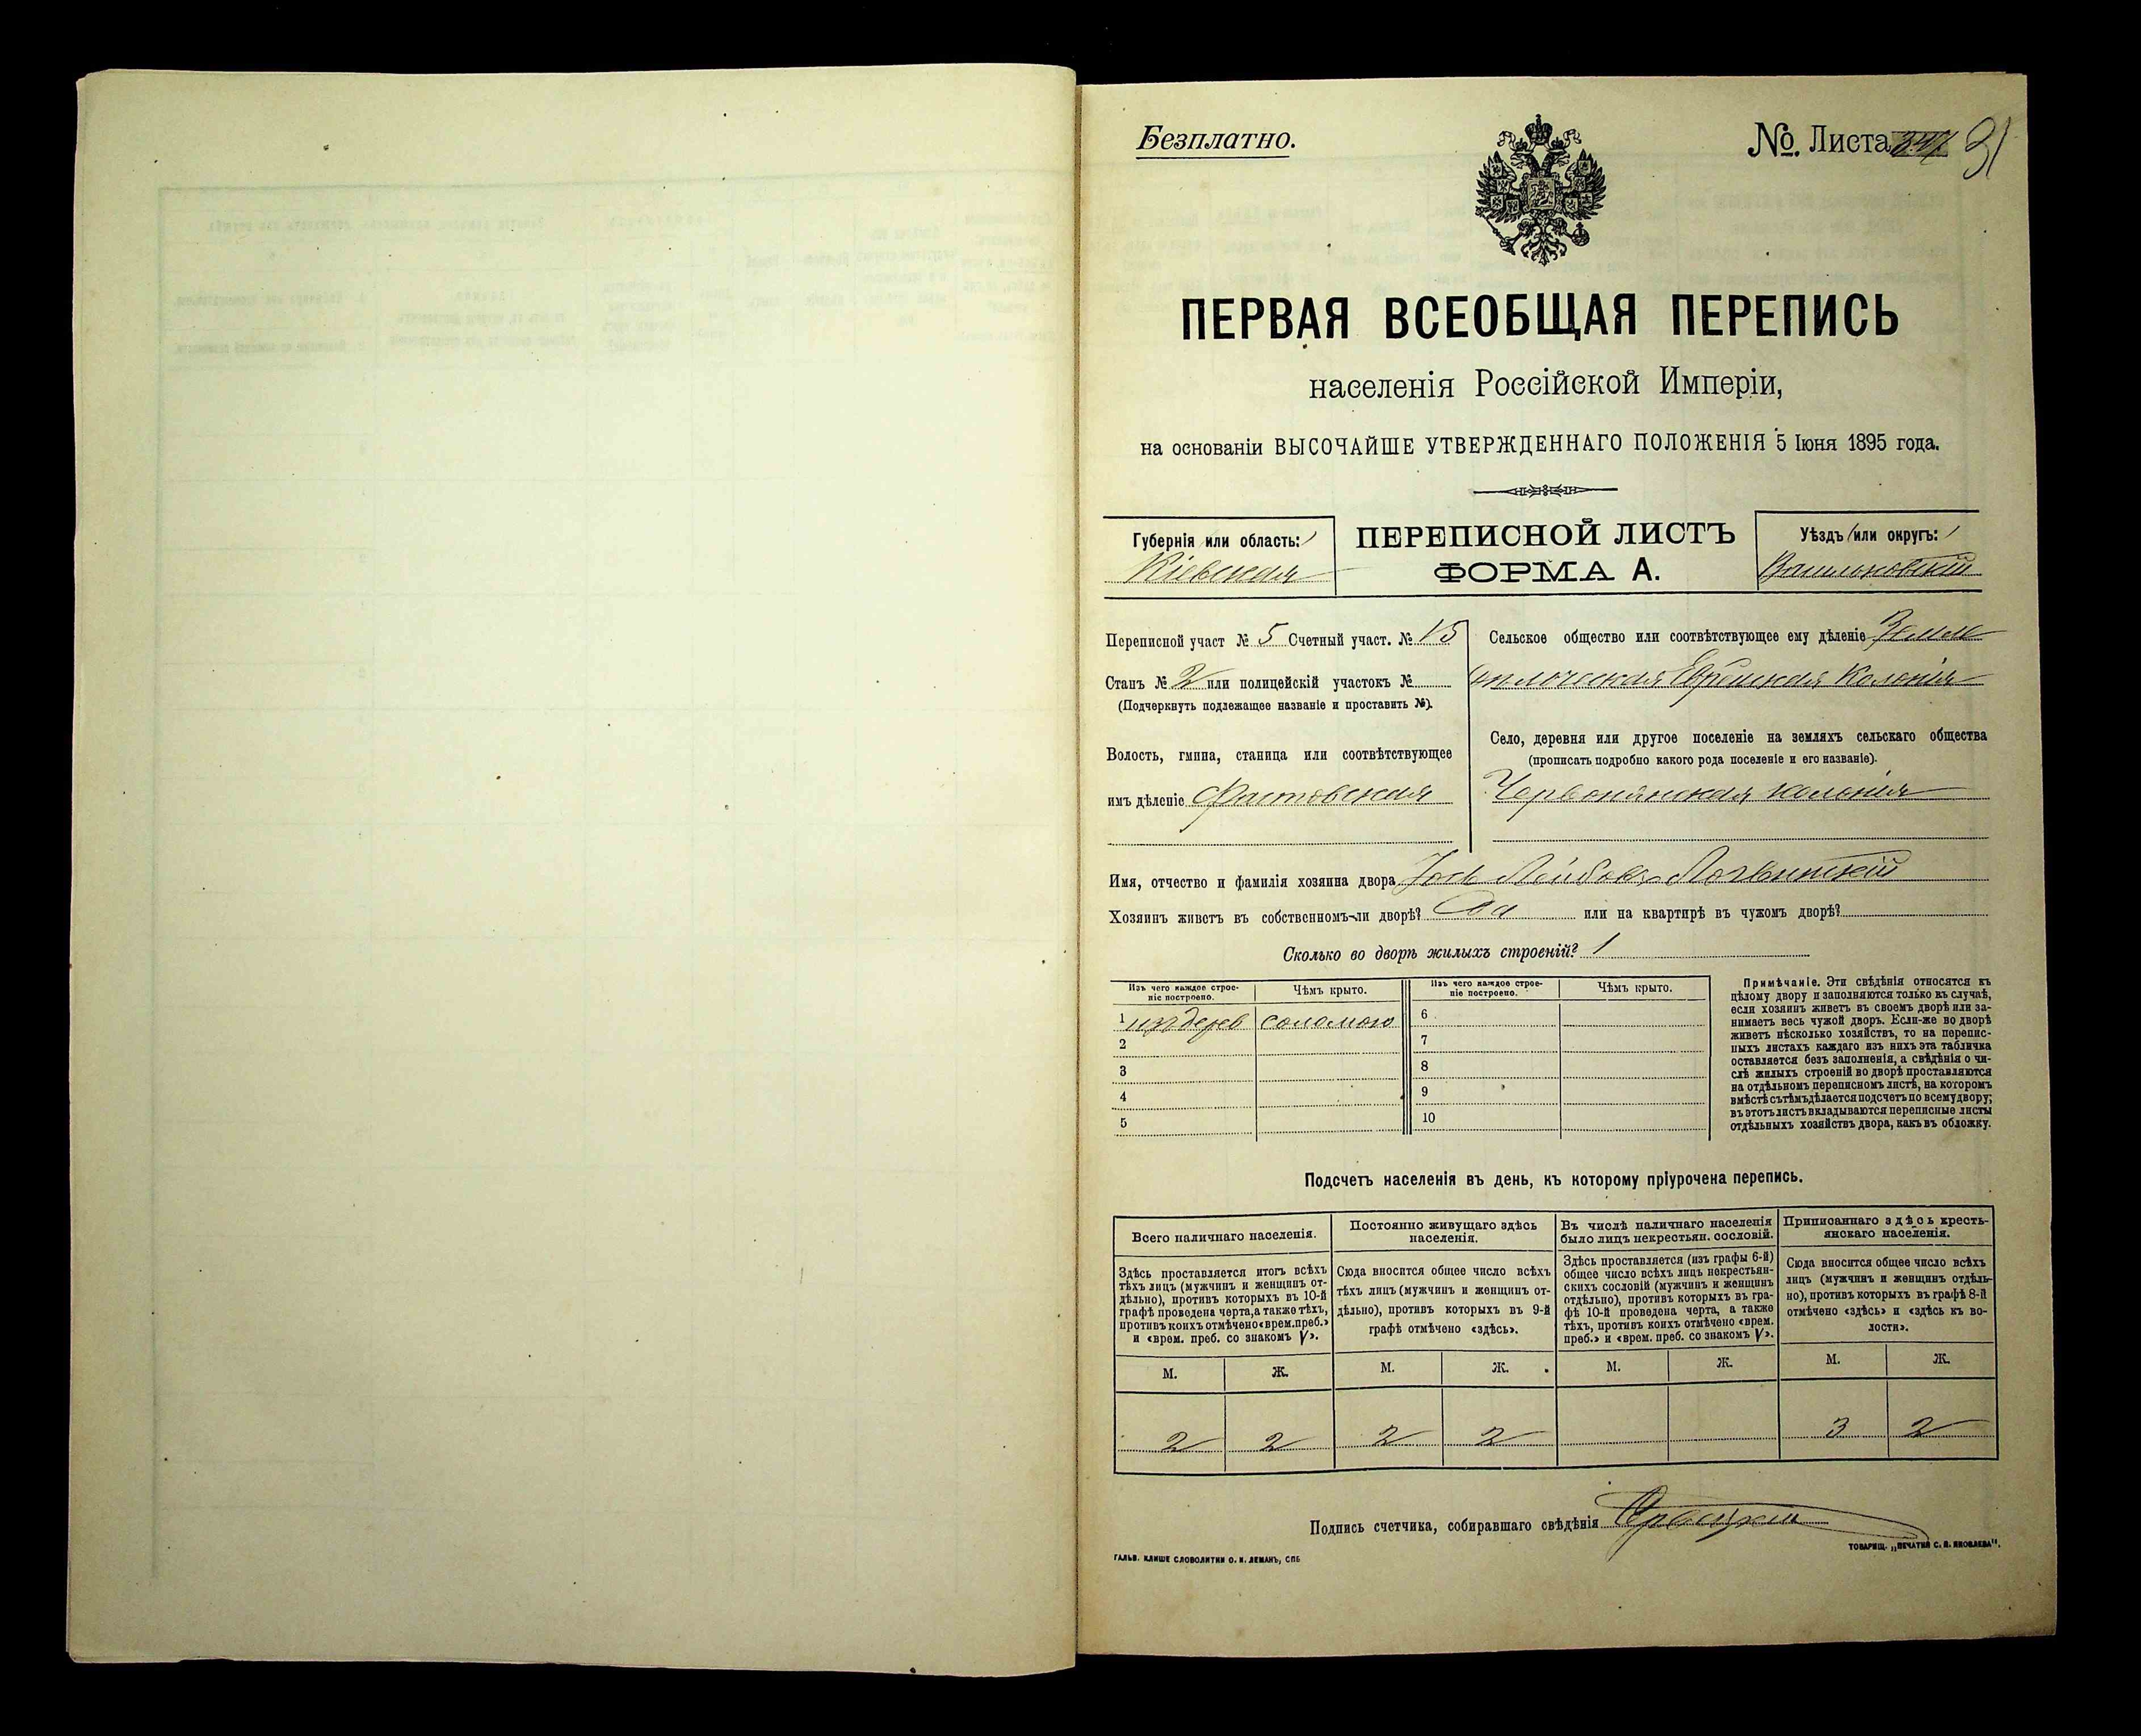 Безплатно.
№. Листа 31
ПЕРВАЯ ВСЕОБЩАЯ ПЕРЕПИСЬ
населенія Россійской Имперіи,
на основаніи ВЫСОЧАЙШЕ УТВЕРЖДЕННАГО ПОЛОЖЕНІЯ 5 Іюня 1895 года.
Губернія или область:
Кіевская
ПЕРЕПИСНОЙ ЛИСТЪ
ФОРМА А.
Уѣздъ или округъ:
Васильковскій
Переписной участ № 5 Счетный участ. № 15
Станъ № 2 или полицейскій участокъ №
(Подчеркнуть подлежащее названіе и проставить №).
Волость, гмина, станица или соотвѣтствующее
имъ дѣленіе Фастовская
Сельское общество или соотвѣтствующее ему дѣленіе Земле
дѣльческая Еврейская Колонія
Село, деревня или другое поселеніе на земляхъ сельскаго общества
(прописать подробно какого рода поселеніе и его названіе).
Червонянская колонія
Имя, отчество и фамилія хозяина двора Лейбовъ
Хозяинъ живетъ въ собственномъ-ли дворѣ? Да или на квартирѣ въ чужомъ дворѣ?
Сколько во дворѣ жилыхъ строеній? 1
Изъ чего каждое строе-
ніе построено.
Чѣмъ крыто.
Изъ чего каждое строе-
ніе построено.
Чѣмъ крыто.
1 изъ дерев соломою
2
3
4
5
6
7
8
9
10
Примѣчаніе. Эти свѣдѣнія относятся къ
цѣлому двору и заполняются только въ случаѣ,
если хозяинъ живетъ въ своемъ дворѣ или за-
нимаетъ весь чужой дворъ. Если-же во дворѣ
живетъ нѣсколько хозяйствъ, то на перепис-
ныхъ листахъ каждаго изъ нихъ эта табличка
оставляется безъ заполненія, а свѣдѣнія о чи-
слѣ жилыхъ строеній во дворѣ проставляются
на отдѣльномъ переписномъ листѣ, на которомъ
вмѣстѣ съ тѣмъ дѣлается подсчетъ по всему двору;
въ этотъ листъ вкладываются переписные листы
отдѣльныхъ хозяйствъ двора, какъ въ обложку.
Подсчетъ населенія въ день, къ которому пріурочена перепись.
Всего наличнаго населенія.
Здѣсь проставляется итогъ всѣхъ
тѣхъ лицъ (мужчинъ и женщинъ от-
дѣльно), противъ которыхъ въ 10-й
графѣ проведена черта, а также тѣхъ,
противъ коихъ отмѣчено «врем. преб.»
и «врем. преб. со знакомъ V».
Постоянно живущаго здѣсь
населенія.
Сюда вносится общее число всѣхъ
тѣхъ лицъ (мужчинъ и женщинъ от-
дѣльно), противъ которыхъ въ 9-й
графѣ отмѣчено «здѣсь».
Въ числѣ наличнаго населенія
было лицъ некрестьян. сословій.
Здѣсь проставляется (изъ графы 6-й)
общее число всѣхъ лицъ некрестьян-
скихъ сословій (мужчинъ и женщинъ
отдѣльно), противъ которыхъ въ гра-
фѣ 10-й проведена черта, а также
тѣхъ, противъ коихъ отмѣчено «врем.
преб.» и «врем. преб. со знакомъ V».
Приписаннаго здѣсь кресть-
янскаго населенія.
Сюда вносится общее число всѣхъ
лицъ (мужчинъ и женщинъ отдѣль-
но), противъ которыхъ въ графѣ 8-й
отмѣчено «здѣсь» и «здѣсь къ во-
лости».
М. Ж. М. Ж. М. Ж. М. Ж.
2 2 2 2 3 2
Подпись счетчика, собиравшаго свѣдѣнія
ГАЛЬВ. КЛИШЕ СЛОВОЛИТНИ О. И. ЛЕМАНЪ, СПБ
ТОВАРИЩ. „ПЕЧАТНЯ С. П. ЯКОВЛЕВА".